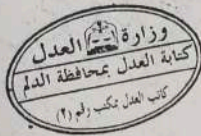 وزارة العدل
كتابة العدل بمحافظة الدلم
كاتب العدل بمكتب رقم (٢)